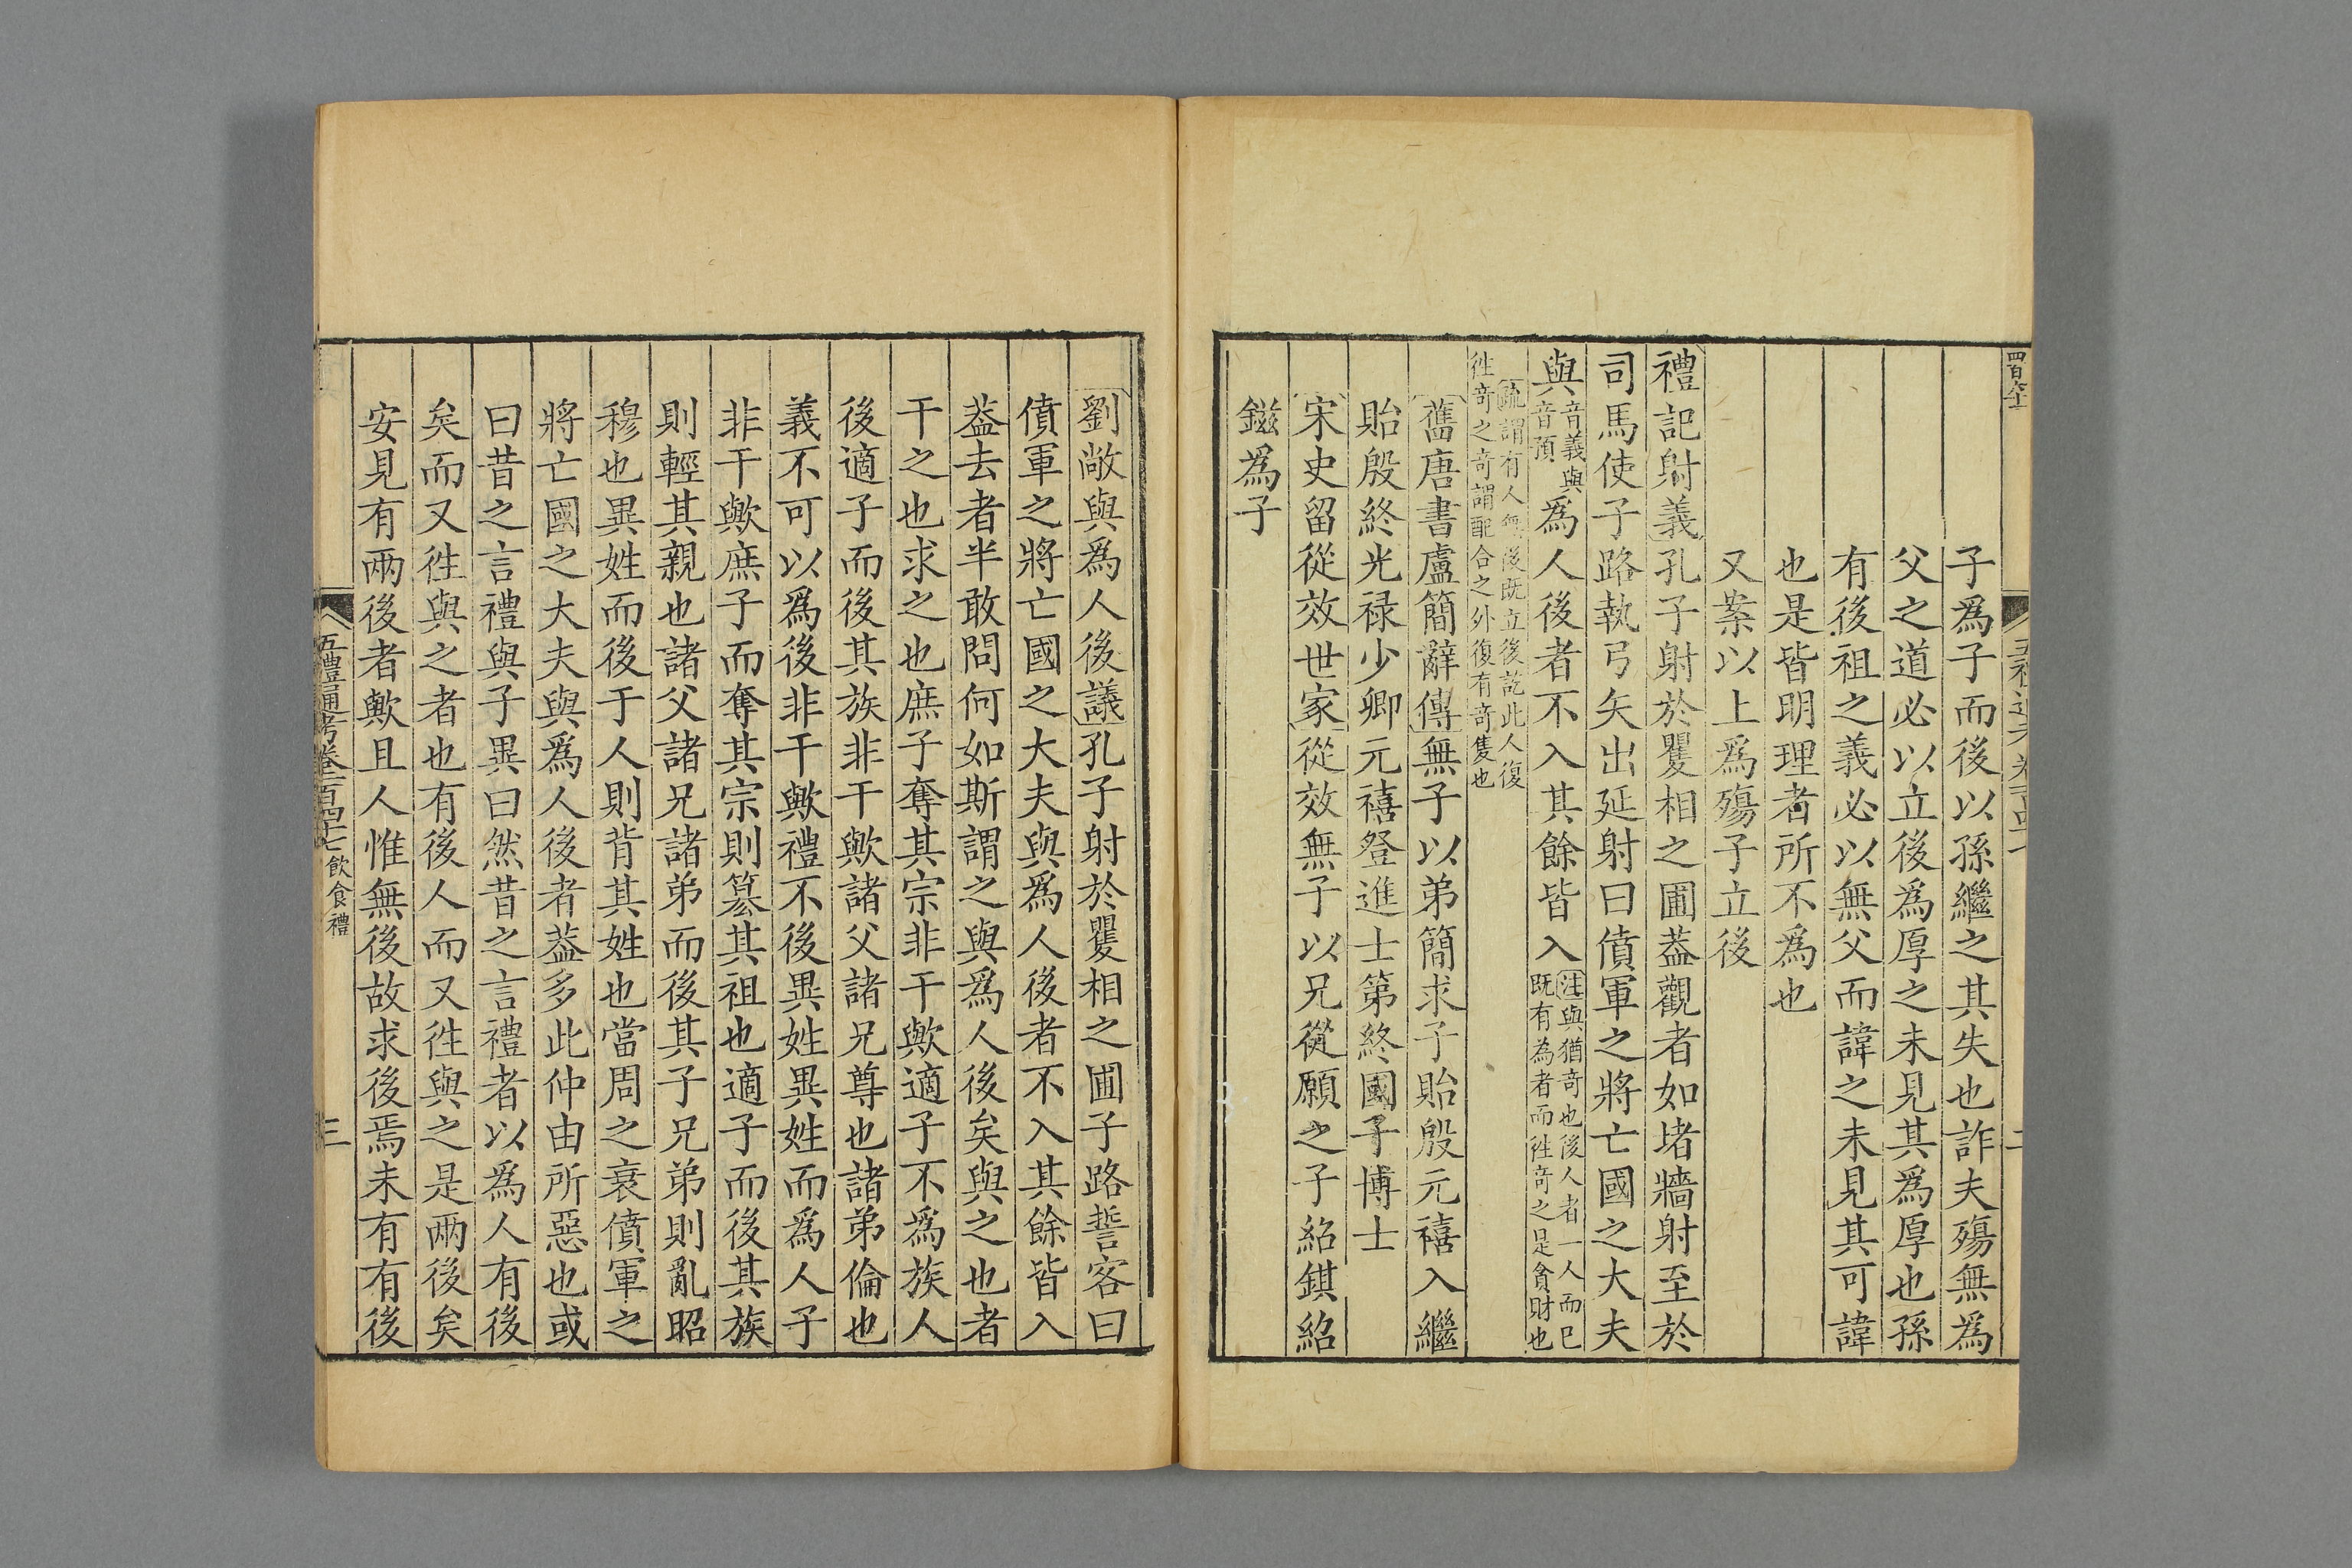 四百六十
子爲子而後以孫繼之其失也詐夫殤無爲
父之道必以立後爲厚之未見其爲厚也孫
有後祖之義必以無父而諱之未見其可諱
也是皆明理者所不爲也
又案以上爲殤子立後
禮記射義孔子射於矍相之圃蓋觀者如堵牆射至於
司馬使子路執弓矢出延射曰僨軍之將亡國之大夫
與
音義與
音預
爲人後者不入其餘皆入
注與猶奇也後人者一人而已
既有為者而徃奇之是貪財也
疏謂有人無後既立後訖此人復
徃奇之奇謂配合之外復有奇隻也
舊唐書盧簡辭傳無子以弟簡求子貽殷元禧入繼
貽殷終光禄少卿元禧登進士第終國子博士
宋史留從效世家從效無子以兄從願之子紹錤紹
鎡爲子
劉敞與爲人後議孔子射於矍相之圃子路誓客曰
僨軍之將亡國之大夫與爲人後者不入其餘皆入
葢去者半敢問何如斯謂之與爲人後矣與之也者
干之也求之也庶子奪其宗非干歟適子不爲族人
後適子而後其族非干歟諸父諸兄尊也諸弟倫也
義不可以爲後非干歟禮不後異姓異姓而爲人子
非干歟庶子而奪其宗則簒其祖也適子而後其族
則輕其親也諸父諸兄諸弟而後其子兄弟則亂昭
穆也異姓而後于人則背其姓也當周之衰僨軍之
將亡國之大夫與爲人後者葢多此仲由所惡也或
曰昔之言禮與子異曰然昔之言禮者以爲人有後
矣而又徃與之者也有後人而又徃與之是兩後矣
安見有兩後者歟且人惟無後故求後焉未有有後
五禮通考卷一百四十七 飲食禮
三